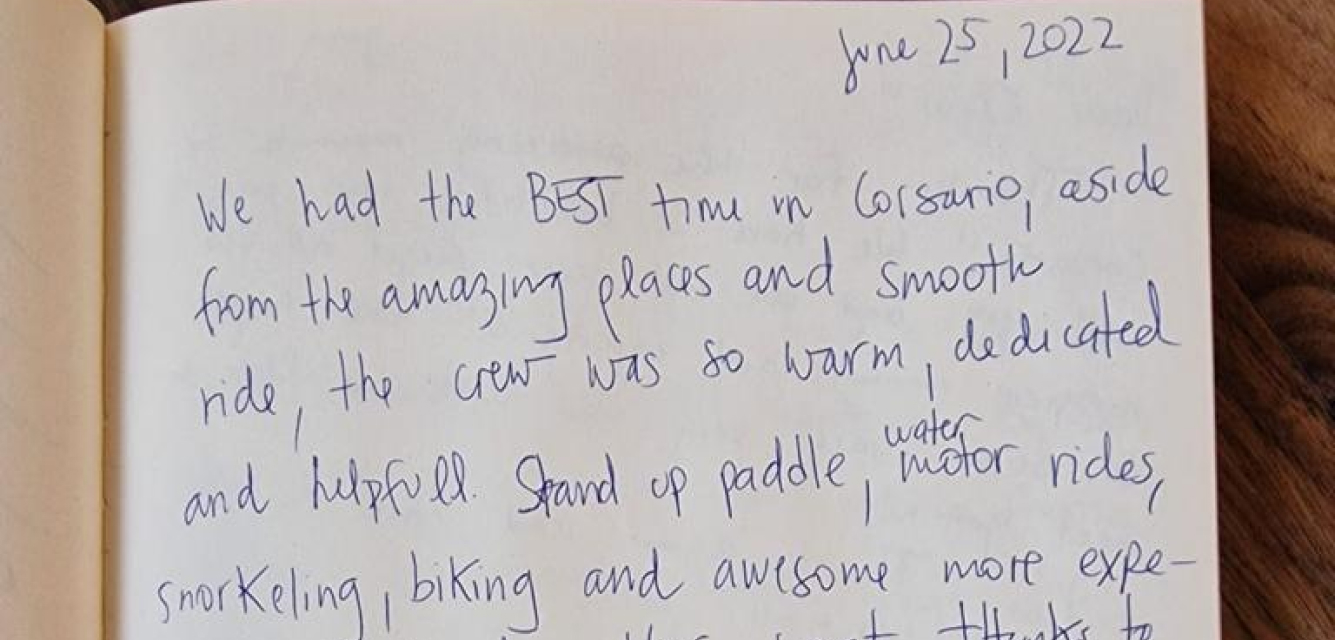 June 25, 2022
We had the BEST time in Corsario, aside
from the amazing places and smooth
ride, the crew was so warm, dedicated
and helpfull. Stand up paddle, water motor rides,
snorkeling, biking and awesome more expe-
thanks to